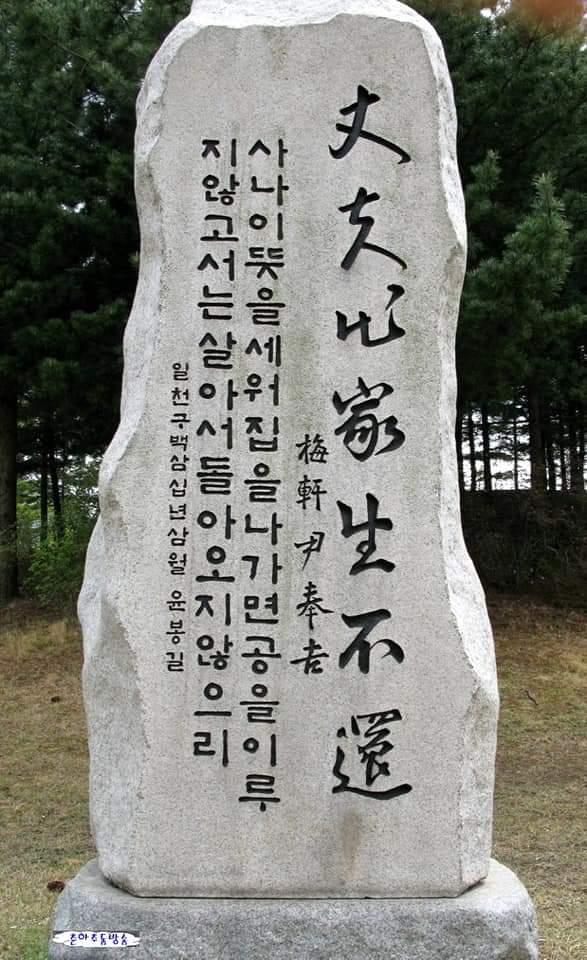 丈夫出家生不還
梅軒尹奉吉
사나이뜻을세워집을나가면공을이루
지않고서는살아서돌아오지않으리
일천구백삼십년삼월 윤봉길